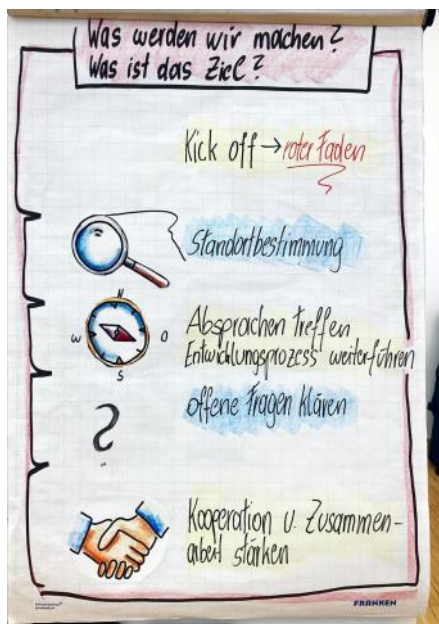 Was werden wir machen?
Was ist das Ziel?
Kick off → roter Faden
Standortbestimmung
N
W O
S
Absprachen treffen
Entwicklungsprozess weiterführen
?
offene Fragen klären
Kooperation u. Zusammen-
arbeit stärken
FRANKEN